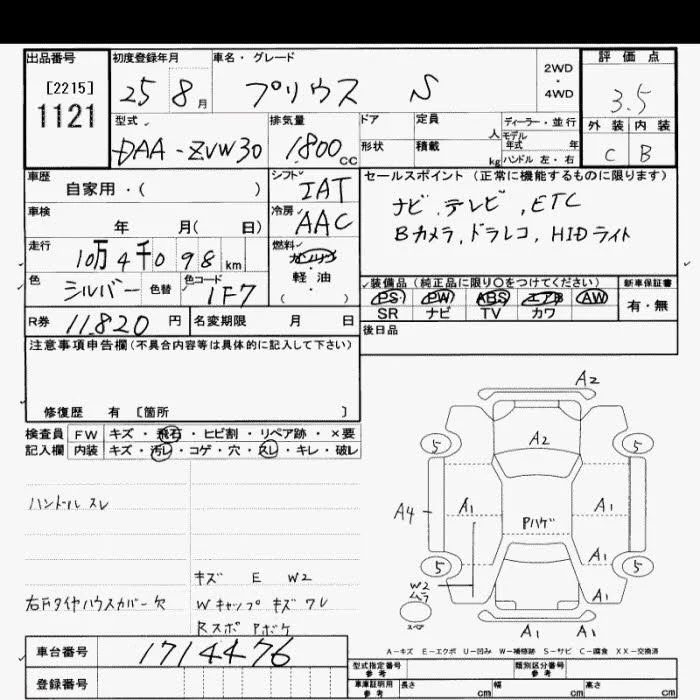 出品番号 初度登録年月 車名・グレード 2WD・4WD 評価点
[2215]
1121
25 8月 プリウス S 3.5
型式 排気量 ドア 定員 人 ディーラー・並行 外装 内装
モデル年式 年
DAA-ZVW30 1800cc 形状 積載 kg ハンドル 左・右 C B
車歴 自家用・( ) シフト IAT セールスポイント (正常に機能するものに限ります)
車検 年 月(日) 冷房 AAC ナビ、テレビ、ETC
Bカメラ、ドラレコ、HIDライト
走行 10万4千098km 燃料 ガソリン
軽・油
( )
色 シルバー 色替 色コード 1F7
装備品 (純正品に限り○をつけてください) 新車保証書
PS PW ABS エアB AW 有・無
SR ナビ TV カワ
R券 11,820円 名変期限 月 日 後日品
注意事項申告欄(不具合内容等は具体的に記入して下さい)
修復歴 有 [箇所 ]
検査員 FW キズ・飛石・ヒビ割・リペア跡・×要
記入欄 内装 キズ・汚レ・コゲ・穴・スレ・キレ・破レ
ハンドル スレ
キズ E W2
右Fタイヤハウスカバー欠 Wキャップ キズ ワレ
Rスポ Pボケ
A2
5 A2 5
A4 A1 Pハゲ A1
A1
5 5
W2
ムラ
A1
スペア
A1 A1
A-キズ E-エクボ U-凹み W-補修跡 S-サビ C-腐食 XX-交換済
車台番号 1714476
登録番号
型式指定番号 参考 類別区分番号 参考
車庫証明用 参考 長さ cm 幅 cm 高さ cm